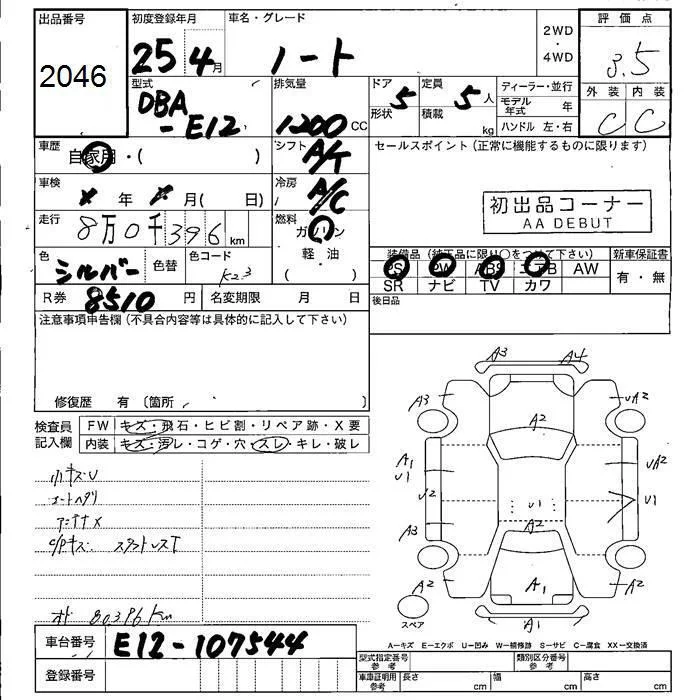 出品番号
2046
初度登録年月
25 4月
車名・グレード
ノート
2WD
・
4WD
評価点
3.5
外装 内装
C C
型式
DBA
-E12
排気量
1200 CC
ドア 5
形状
定員 5人
積載 kg
ディーラー・並行
モデル年式 年
ハンドル 左・右
車歴
自家用・( )
シフト
A/T
セールスポイント(正常に機能するものに限ります)
車検
× 年 × 月( 日)
冷房
A/C
初出品コーナー
AA DEBUT
走行
8万0千396km
燃料
ガソリン
軽・油
( )
色
シルバー
色替
色コード
K23
装備品(純正品に限り〇をつけて下さい)
PS PW ABS エアB AW
SR ナビ TV カワ
新車保証書
有・無
R券 8510円
名変期限 月 日
後日品
注意事項申告欄(不具合内容等は具体的に記入して下さい)
修復歴 有〔箇所
検査員
記入欄
FW キズ・飛石・ヒビ割・リペア跡・X要
内装 キズ・汚レ・コゲ・穴・スレ・キレ・破レ
小キズU
シートヘタリ
アンテナX
C/Pキズ
オド 80396km
A3 A4
A3 UA2
A2
A1
U1
UA2
U2 U1 U1
A3 A2
A2 A1 A2
スペア
A1
A−キズ E−エクボ U−凹み W−補修跡 S−サビ C−腐食 XX−交換済
車台番号
E12-107544
登録番号
型式指定番号
参考
類別区分番号
参考
車庫証明用
参考
長さ cm
幅 cm
高さ cm